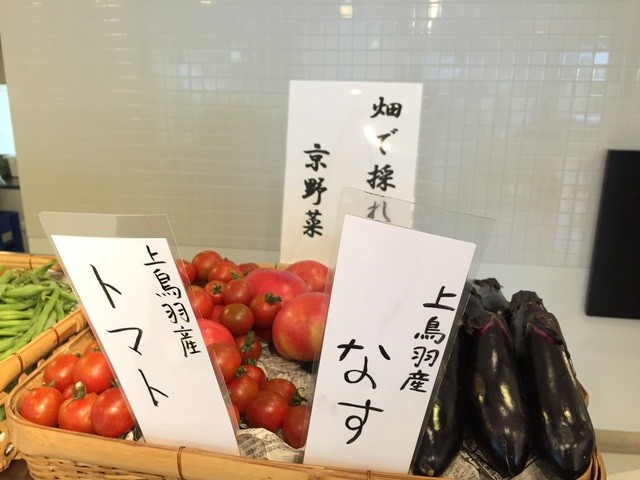 畑で採れ
京野菜
上鳥羽産
トマト
上鳥羽産
なす